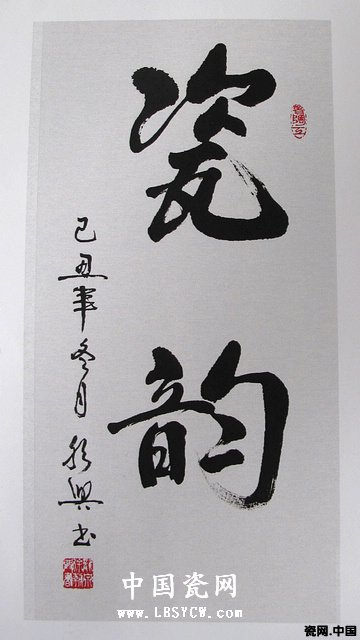 瓷韵
己丑年冬月
兴书
中国瓷网
www.LBSYCW.com
瓷网.中国